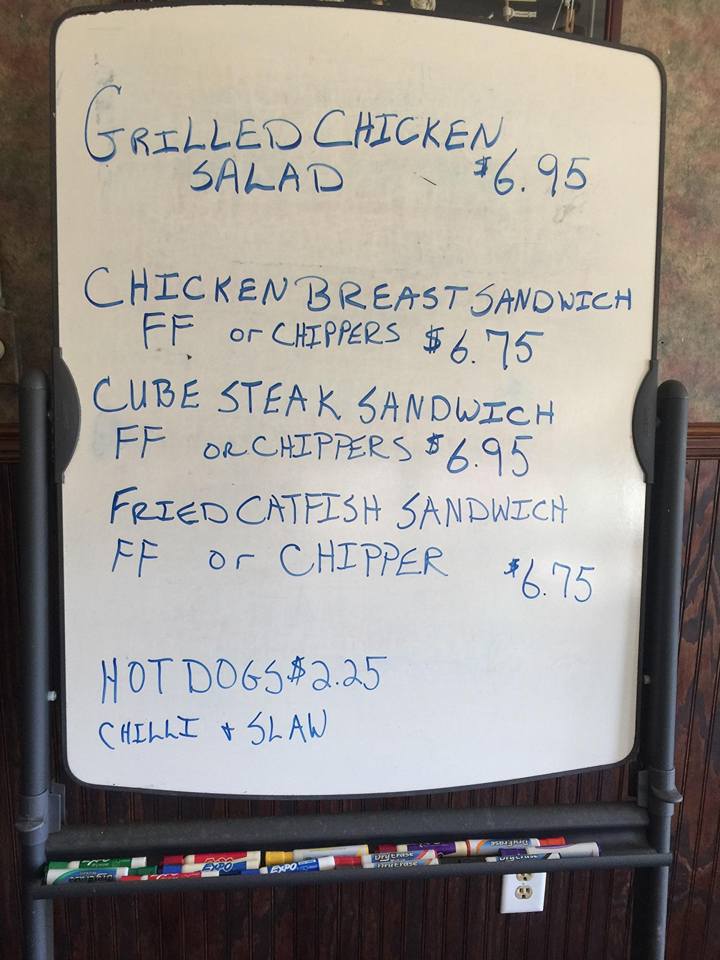 GRILLED CHICKEN
SALAD $6.95
CHICKEN BREAST SANDWICH
FF or CHIPPERS $6.75
CUBE STEAK SANDWICH
FF OR CHIPPERS $6.95
FRIED CATFISH SANDWICH
FF or CHIPPER $6.75
HOT DOGS $2.25
CHILLI & SLAW
EXPO
EXPO
Dry Erase
Dry Erase